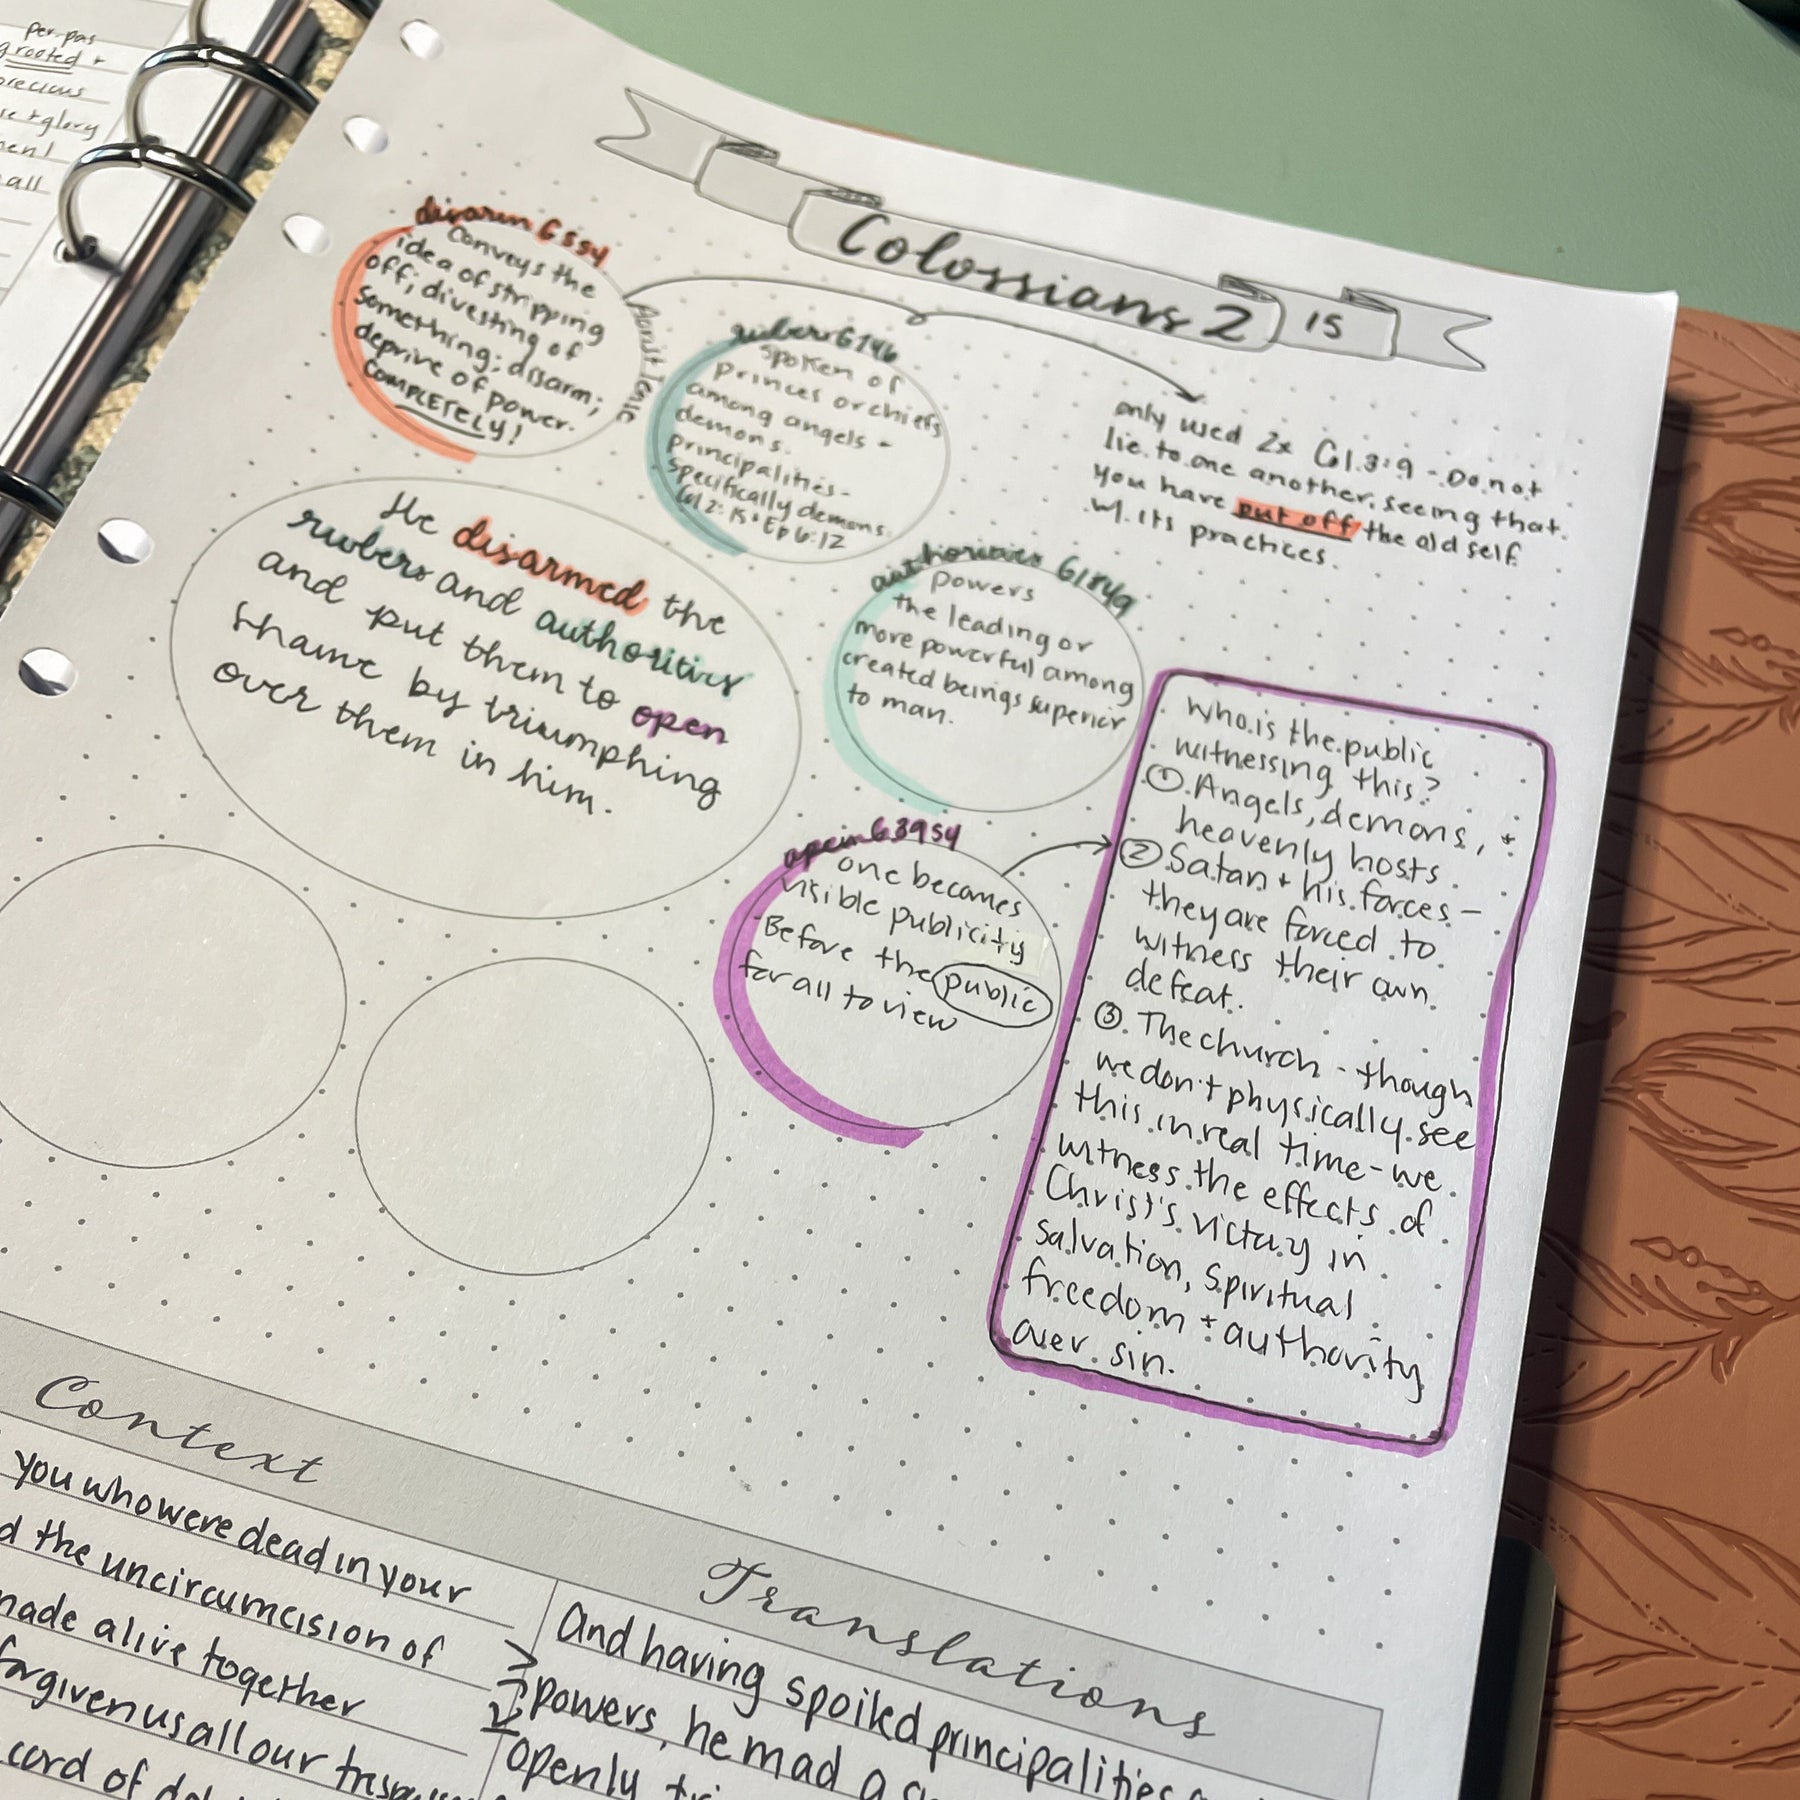 per-pas
rooted +
precious
+ glory
all
Colossians 2 15
disarm G554
Conveys the
idea of stripping
off; divesting of
something; disarm;
deprive of power.
COMPLETELY!
rulers G746
Spoken of
princes or chiefs
among angels +
demons.
principalities-
specifically demons.
Col 2:15 + Ep 6:12
only used 2x Col.3:9 - Do not
lie to one another, seeing that
you have put off the old self
w. its practices.
He disarmed the
rulers and authorities
and put them to open
shame by triumphing
over them in him.
authorities G1849
powers
the leading or
more powerful among
created beings superior
to man.
open G3954
one becomes
visible publicity
Before the public
for all to view
Who is the public
witnessing this?
① Angels, demons, +
heavenly hosts
② Satan + his forces -
they are forced to
witness their own
defeat.
③ The church - though
we don't physically see
this in real time - we
witness the effects of
Christ's victory in
salvation, spiritual
freedom + authority
over sin.
Context
you who were dead in your
the uncircumcision of
made alive together
forgiven us all our
cord of
Translations
And having spoiled principalities
powers, he mad a
openly